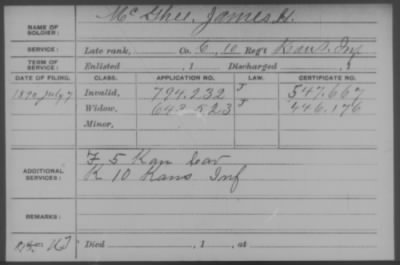 NAME OF SOLDIER: McGhee, James H.
SERVICE: Late rank, Co. C, 10 Reg't Kans. Inf
TERM OF SERVICE: Enlisted , 1 Discharged , 1
DATE OF FILING. CLASS. APPLICATION NO. LAW. CERTIFICATE NO.
1890, July 7 Invalid, 794.232 J 547.667
Widow, 643.523 J 446.176
Minor,
ADDITIONAL SERVICES: F 5 Kan Cav
K 10 Kans Inf
REMARKS:
Died , 1 , at